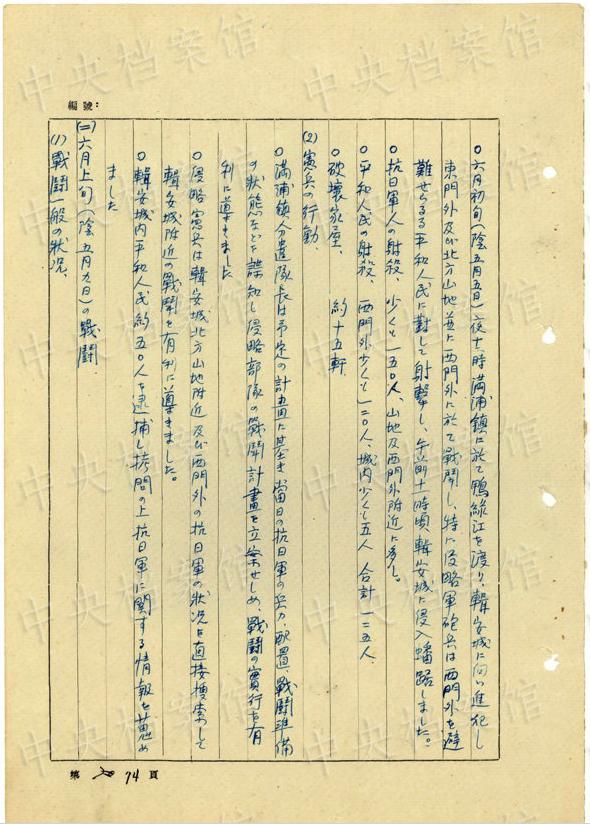 中央档案馆
編號：
○六月初旬（陰五月五日）夜十一時満浦鎮に於て鴨緑江を渡り、輯安城に向い進犯し
東門外及び北方山地並に西門外に於て戰鬪し、特に侵略軍砲兵は西門外を避
難せらるる平和人民に対して射撃し、午前十一時頃輯安城に侵入蟠踞しました。
○抗日軍人の射殺、少くも一五〇人、山地及西門外附近に多し。
○平和人民の射殺、西門外少くも一二〇人、城内少くも五人 合計一二五人
○破壊家屋、約十五軒
(2)憲兵の行動、
○満浦鎮分遣隊長は予定の計畫に基き當日の抗日軍の兵力、配置、戰鬪準備
の状態などを諜知し侵略部隊の戰鬪計畫を立案せしめ、戰鬪の實行を有
利に導きました
○侵略憲兵は輯安城北方山地附近及び西門外の抗日軍の状況を直接捜索して
輯安城附近の戰鬪を有利に導きました。
○輯安城内平和人民約五〇人を逮捕し拷問の上抗日軍に関する情報を蒐め
ました
(二)六月上旬（陰五月九日）の戰鬪
(1)戰鬪一般の状況、
第 74 頁